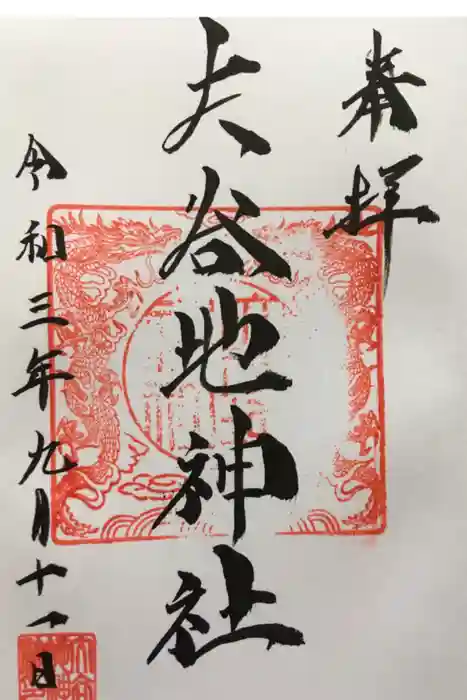 奉拝
大谷地神社
令和三年九月十一日